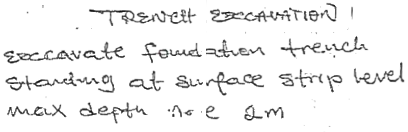 TRENCH EXCAVATION 1
Excavate foundation trench
standing at surface strip level
max depth n.e 2m